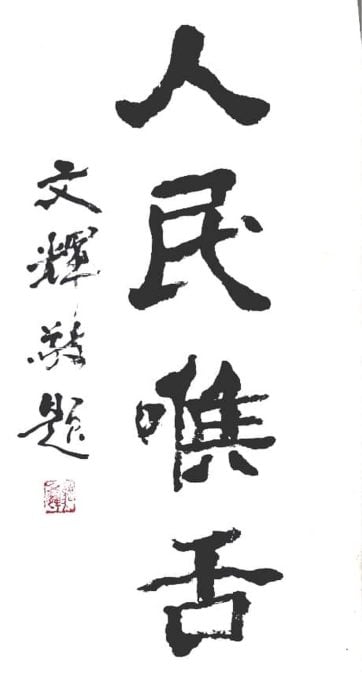 人民喉舌
文輝敬題